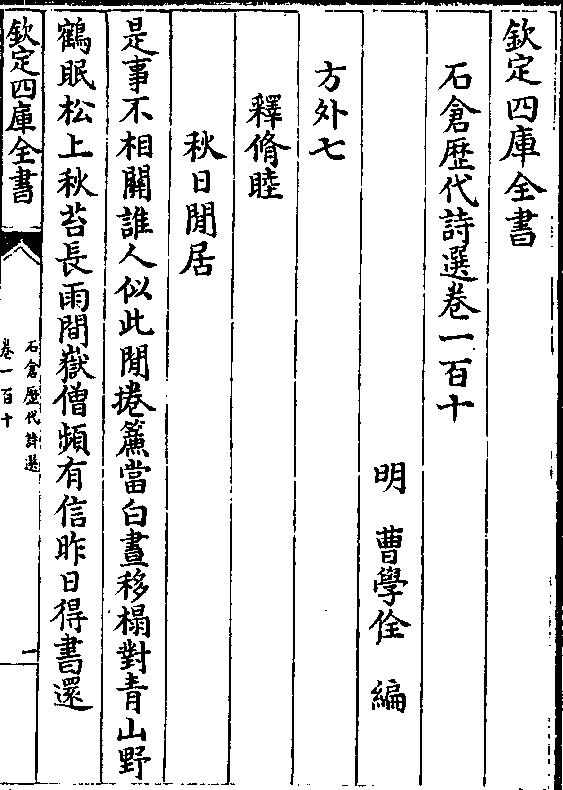 欽定四庫全書
石倉歴代詩選卷一百十
明　曹學佺　編
方外七
釋脩睦
秋日閒居
是事不相關誰人似此閒捲簾當白晝移榻對青山野
鶴眠松上秋苔長雨間嶽僧頻有信昨日得書還
欽定四庫全書
石倉歴代詩選
卷一百十
一